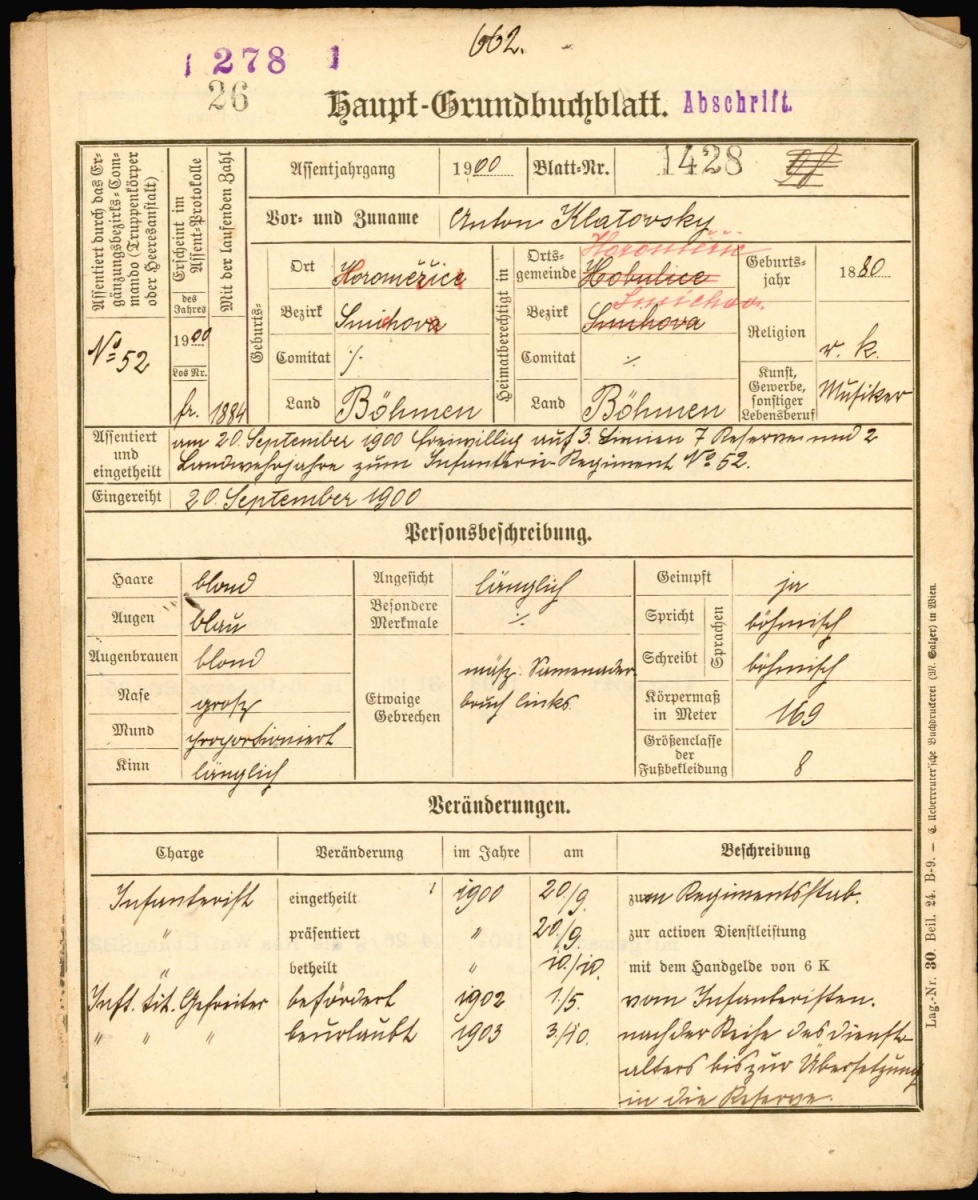 662.
1 278 1
26
Haupt-Grundbuchblatt. Abschrift.
Assentiert durch das Er-
gänzungsbezirks-Com-
mando (Truppenkörper
oder Heeresanstalt)
No 52
Erscheint im
Assent-Protokolle
des
Jahres
1900
Los Nr.
fr.
Mit der laufenden Zahl
1884
Assentjahrgang 1900 Blatt-Nr. 1428
Vor- und Zuname Anton Klatovsky
Geburts-
Ort Horoměřice
Bezirk Smichova
Comitat ⁒
Land Böhmen
Heimatberechtigt in
Horoměřic
Orts-
gemeinde Hobulice
Smichov
Bezirk Smichova
Comitat ⁒
Land Böhmen
Geburts-
jahr 1880
Religion r. k.
Kunst,
Gewerbe,
sonstiger
Lebensberuf
Musiker
Assentiert
und
eingetheilt
am 20. September 1900 freiwillig auf 3 Linien 7 Reserve und 2
Landwehrjahre zum Infanterie-Regiment No 52.
Eingereiht 20. September 1900
Personsbeschreibung.
Haare blond
Augen blau
Augenbrauen blond
Nase groß
Mund proportioniert
Kinn länglich
Angesicht länglich
Besondere
Merkmale ⁒
Etwaige
Gebrechen
mäß. Samenader-
bruch links
Geimpft ja
Sprachen
Spricht böhmisch
Schreibt böhmisch
Körpermaß
in Meter 169
Größenclasse
der
Fußbekleidung 8
Veränderungen.
Charge Veränderung im Jahre am Beschreibung
Infanterist eingetheilt 1 1900 20./9. zum Regimentsstab.
" präsentiert " 20./9. zur activen Dienstleistung
" betheilt " 10./10. mit dem Handgelde von 6 K
Inft. tit. Gefreiter befördert 1902 1./5. vom Infanteristen.
" " " beurlaubt 1903 3./10. nach der Reihe des Dienst-
alters bis zur Übersetzung
in die Reserve.
Lag.-Nr. 30. Beil. 24. B-9. — C. Ueberreuter'sche Buchdruckerei (M. Salzer) in Wien.